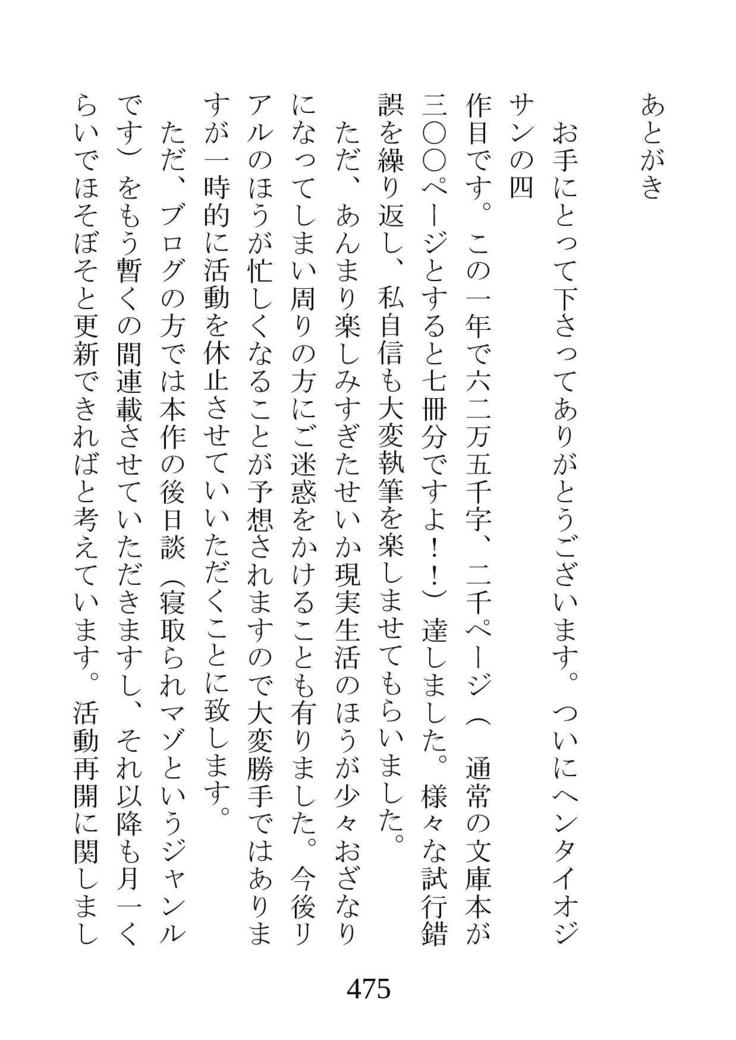 あとがき
お手にとって下さってありがとうございます。ついにヘンタイオジ
サンの四
作目です。この一年で六二万五千字、二千ページ（　通常の文庫本が
三〇〇ページとすると七冊分ですよ！！）達しました。様々な試行錯
誤を繰り返し、私自信も大変執筆を楽しませてもらいました。
ただ、あんまり楽しみすぎたせいか現実生活のほうが少々おざなり
になってしまい周りの方にご迷惑をかけることも有りました。今後リ
アルのほうが忙しくなることが予想されますので大変勝手ではありま
すが一時的に活動を休止させていいただくことに致します。
ただ、ブログの方では本作の後日談（寝取られマゾというジャンル
です）をもう暫くの間連載させていただきますし、それ以降も月一く
らいでほそぼそと更新できればと考えています。活動再開に関しまし
475